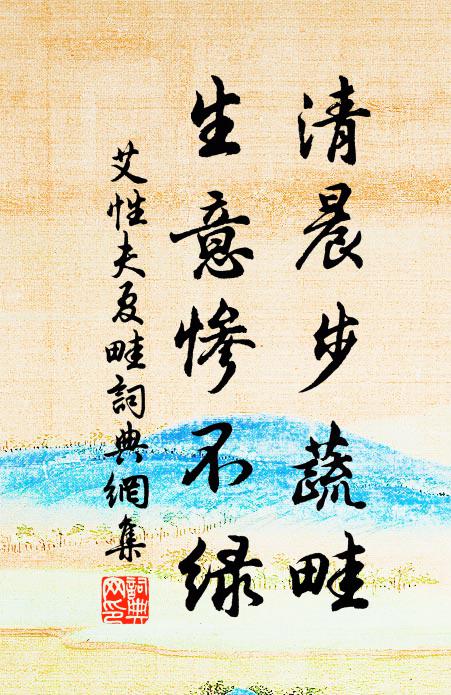 清晨步蔬畦
生意惨不緑
艾性夫夏畦詞典網集
詞典网印